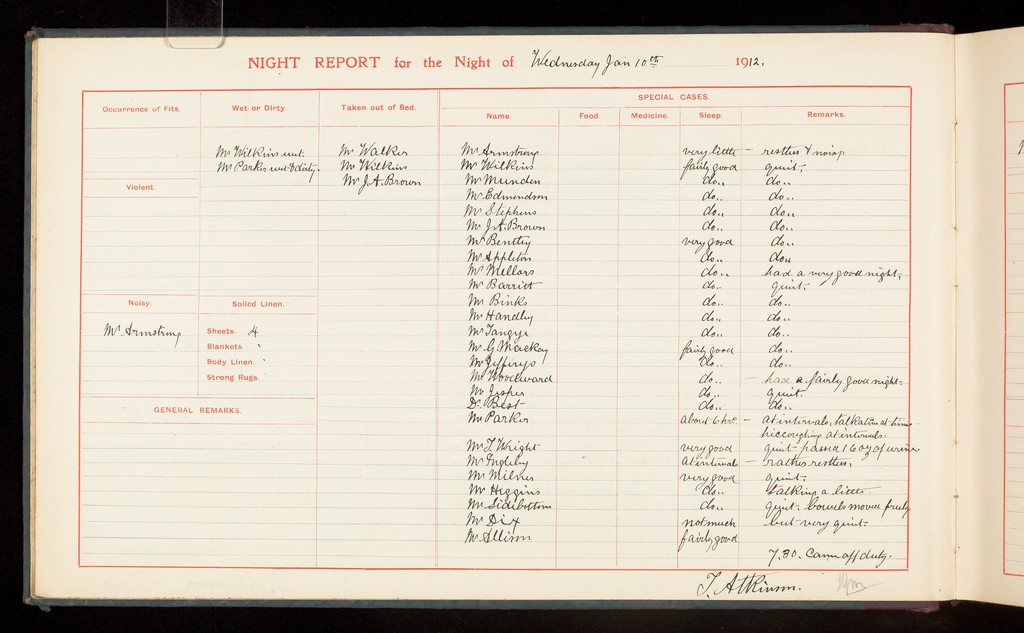 NIGHT REPORT for the Night of Wednesday Jan 10th 1912.
Occurrence of Fits.
Wet or Dirty.
Taken out of Bed.
SPECIAL CASES.
Name. Food. Medicine. Sleep. Remarks.
Mr Wilkins wet.
Mr Parker wet & dirty.
Mr Walker
Mr Wilkins
Mr J.A. Brown
Violent.
Noisy.
Mr Armstrong
Soiled Linen.
Sheets. 4
Blankets "
Body Linen "
Strong Rugs.
GENERAL REMARKS.
Mr Armstrong very little — restless & noisy
Mr Wilkins fairly good quiet.
Mr Munden do.. do..
Mr Edmondson do.. do..
Mr Stephens do.. do..
Mr J.A. Brown do.. do..
Mr Bentley very good do..
Mr Appleton do.. do..
Mr Mellors do.. had a very good night.
Mr Barritt do.. quiet.
Mr Binks do.. do..
Mr Handley do.. do..
Mr Tangye do.. do..
Mr G. Mackay fairly good do..
Mr Jeffreys do.. do..
Mr Woodward do.. — had a fairly good night.
Mr Jesper do.. quiet.
Dr Best do.. do..
Mr Parker about 6 hrs. — at intervals, talkative at times
hiccoughing at intervals.
Mr T. Wright very good quiet — passed 16 oz of urine
Mr Ingleby at intervals — rather restless.
Mr Milner very good quiet.
Mr Higgins do.. talking a little.
Mr Sidebottom do.. quiet. bowels moved freely
Mr Dix not much but very quiet.
Mr Allison fairly good
7.30. Came off duty.
T. Atkinson.